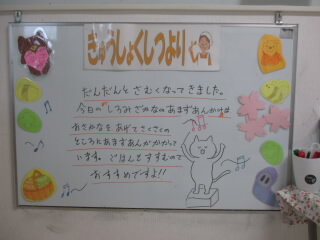 きゅうしょくしつより
だんだんと さむくなってきました。
今日の しろみざかなのあまずあんかけは
おさかなを あげてさくさくの
ところにあまずあんがかかって
います。ごはんもすすむので
おすすめですよ!!